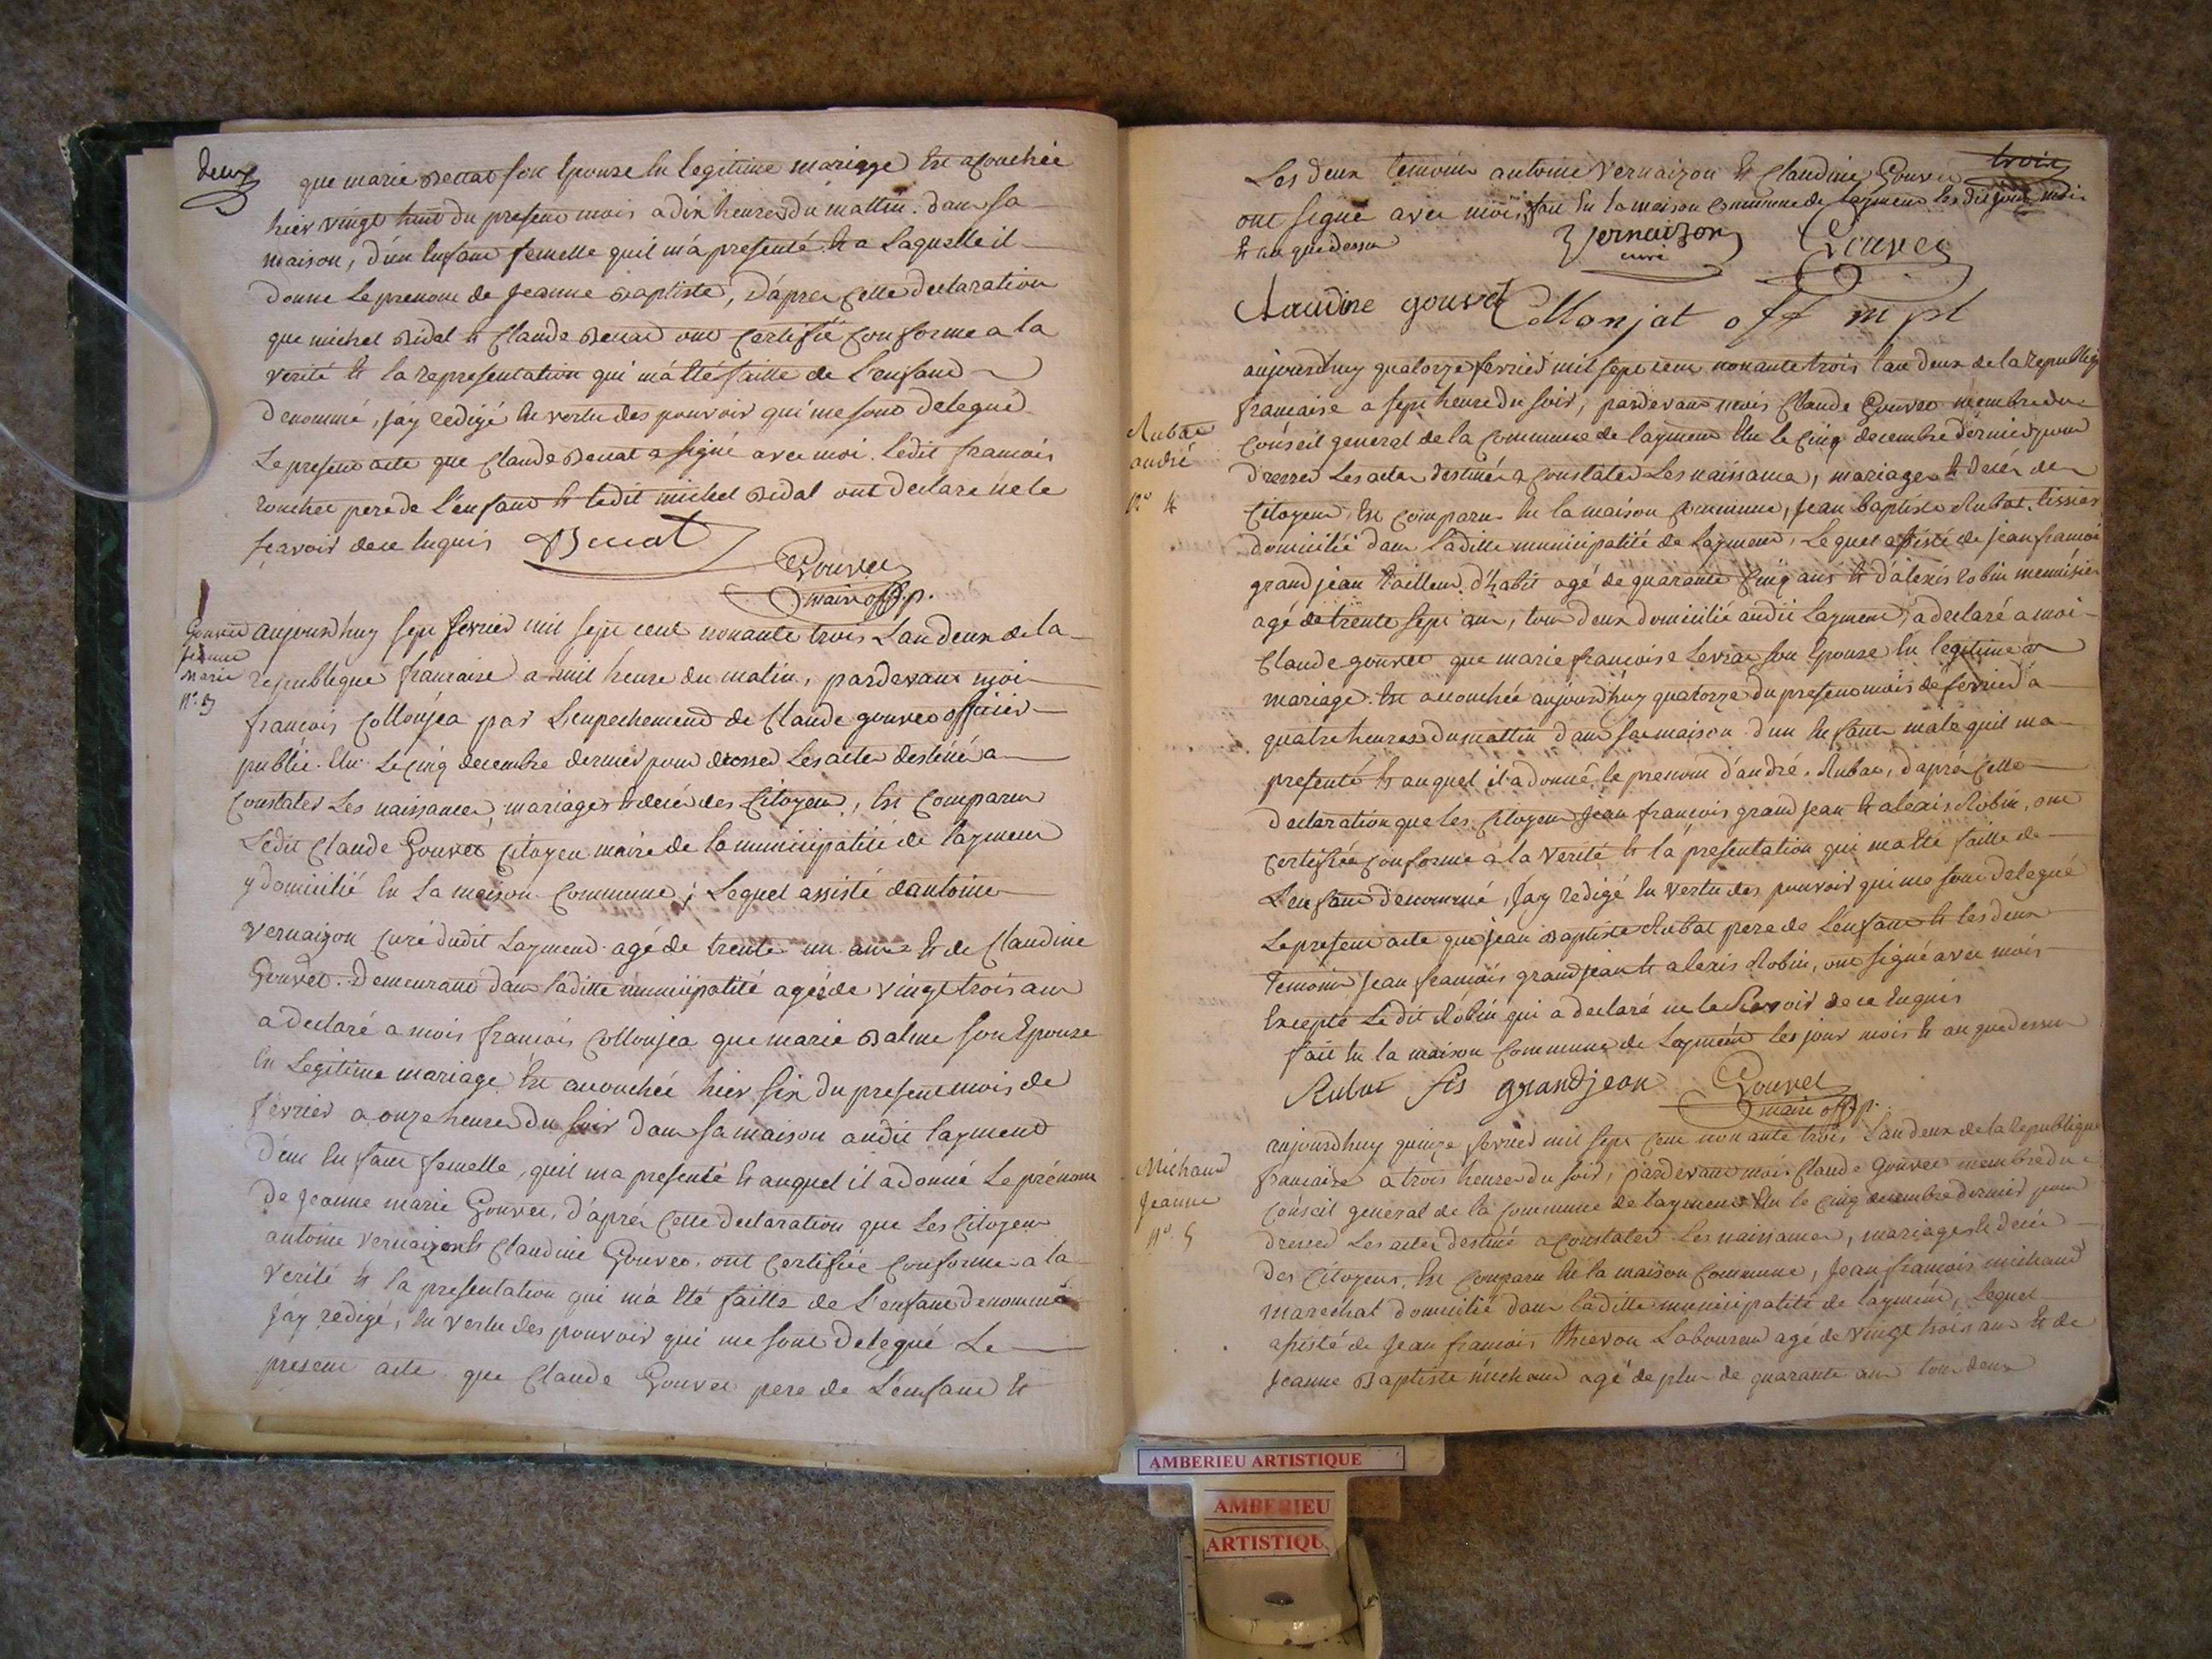 deux
que marie Benat son Epouze En legitime mariage Est acouchée
hier vingt huit du present mois a dix heures du mattin. dans sa
maison, d'un Enfant femelle quil m'a presenté Et a Laquelle il
donne Le prenom de Jeanne Baptiste, D'apres Cette declaration
que michel Bidal Et Claude Benat ont Certifié Conforme a la
verité Et la representation qui m'a Eté faitte de L'enfand
denommé, jay redigé En vertu des pouvoir qui me sont delegué
Le present acte que Claude Benat a signé avec moi. Ledit francois
pere de L'enfand Et ledit michel Bidal ont declaré ne le
scavoir de ce Enquis Benat
Gouvet
maire off. p.
Gouvet
jeanne
marie
n° 3
aujourdhuy sept fevrier mil sept cent nonante trois Lan deux de la
republique francaise a huit heure du matin, pardevant moi
francois Collonjea par L'empechement de Claude gouvet officier
public. Elu Le cinq decembre dernier pour dresser Les actes destiné a
Constater Les naissances, mariages Et decés des Citoyens, Est Comparu
Ledit Claude Gouvet Citoyen maire de la municipalité de laymend
y domicilié En La maison Commune; Lequel assisté dantoine
vernaizon Curé dudit Laymend agé de trente un ans Et de Claudine
Gouvet. Demeurant dans laditte municipalité agée de vingt trois ans
a declaré a mois francois Collonjea que marie Balme son Epouze
En Legitime mariage Est acouchée hier six du present mois de
fevrier a onze heure du soir dans sa maison audit laymend
d'un Enfant femelle, quil ma presenté Et auquel il a donné Le prénom
de Jeanne marie Gouvet, d'aprés Cette declaration que Les Citoyens
antoine vernaizon Et Claudine Gouvet ont Certifiée Conforme a la
verité Et la presentation qui m'a Eté faitte de L'enfant denommé
Jay redigé, En vertu des pouvoir qui me sont delegué Le
present acte que Claude Gouvet pere de L'enfant Et
trois
Les deux temoins antoine Vernaizon Et Claudine Gouvet
ont signé avec moi, fait En la maison Commune de laymend Les dit jour mois
Et an que dessus Vernaizon Gouvet
curé
Claudine gouvet Collonjat off mpl
aujourdhuy quatorze fevrier mil sept cent nonante trois lan deux de la republiq
francaise a sept heure du soir, pardevant mois Claude Gouvet membre du
Rubat
andré
n° 4
Conseil general de la Commune de laymend Elu le Cinq decembre dernier pour
dresser Les actes destiné a Constater Les naissance, mariages Et decés des
Citoyens, Est Comparu En la maison Commune, Jean baptiste Rubat tissier
domicilié dans laditte municipalité de Laymend, Lequel assisté de jean francois
grand jean tailleur d'habit agé de quarante Cinq ans Et d'alexis Robin menuisier
agé de trente sept ans, tous deux domicilié audit Laymend, a declaré a moi
Claude gouvet que marie francoise son Epouze En legitime
mariage Est acouchée aujourdhuy quatorze du present mois de fevrier a
quatre heures du mattin dans sa maison d'un Enfant male quil ma
presenté Et auquel il a donné le prenom d'andré Rubat, d'aprés Cette
declaration que Les Citoyens jean francois grand jean Et alexis Robin, ont
Certifiée Conforme a la verité Et la presentation qui ma Eté faitte de
L'enfant denommé, Jay redigé En vertu des pouvoir qui me sont delegué
Le present acte que jean Baptiste Rubat pere de L'enfant Et les deux
Temoins jean francois grandjean Et alexis Robin, ont signé avec mois
Excepté Ledit Robin qui a declaré ne le scavoir de ce Enquis
fait En la maison Commune de Laymend Les jour mois Et an que dessus
Rubat fis grandjean Gouvet
maire off. p.
Michaud
Jeanne
n° 5
aujourdhuy quinze fevrier mil sept cent nonante trois Lan deux de la republique
francaise a trois heure du soir, pardevant mois Claude Gouvet membre du
Conseil general de la Commune de laymend Elu le Cinq decembre dernier pour
dresser Les actes destiné a Constater Les naissance, mariages Et decés
des Citoyens. Est Comparu En la maison Commune, Jean francois michaud
marechal domicilié dans laditte municipalité de laymend, Lequel
assisté de Jean francois Laboureur agé de vingt trois ans Et de
jeanne Baptiste michaud agé de plus de quarante ans tous deux
AMBERIEU ARTISTIQUE
AMBERIEU
ARTISTIQU